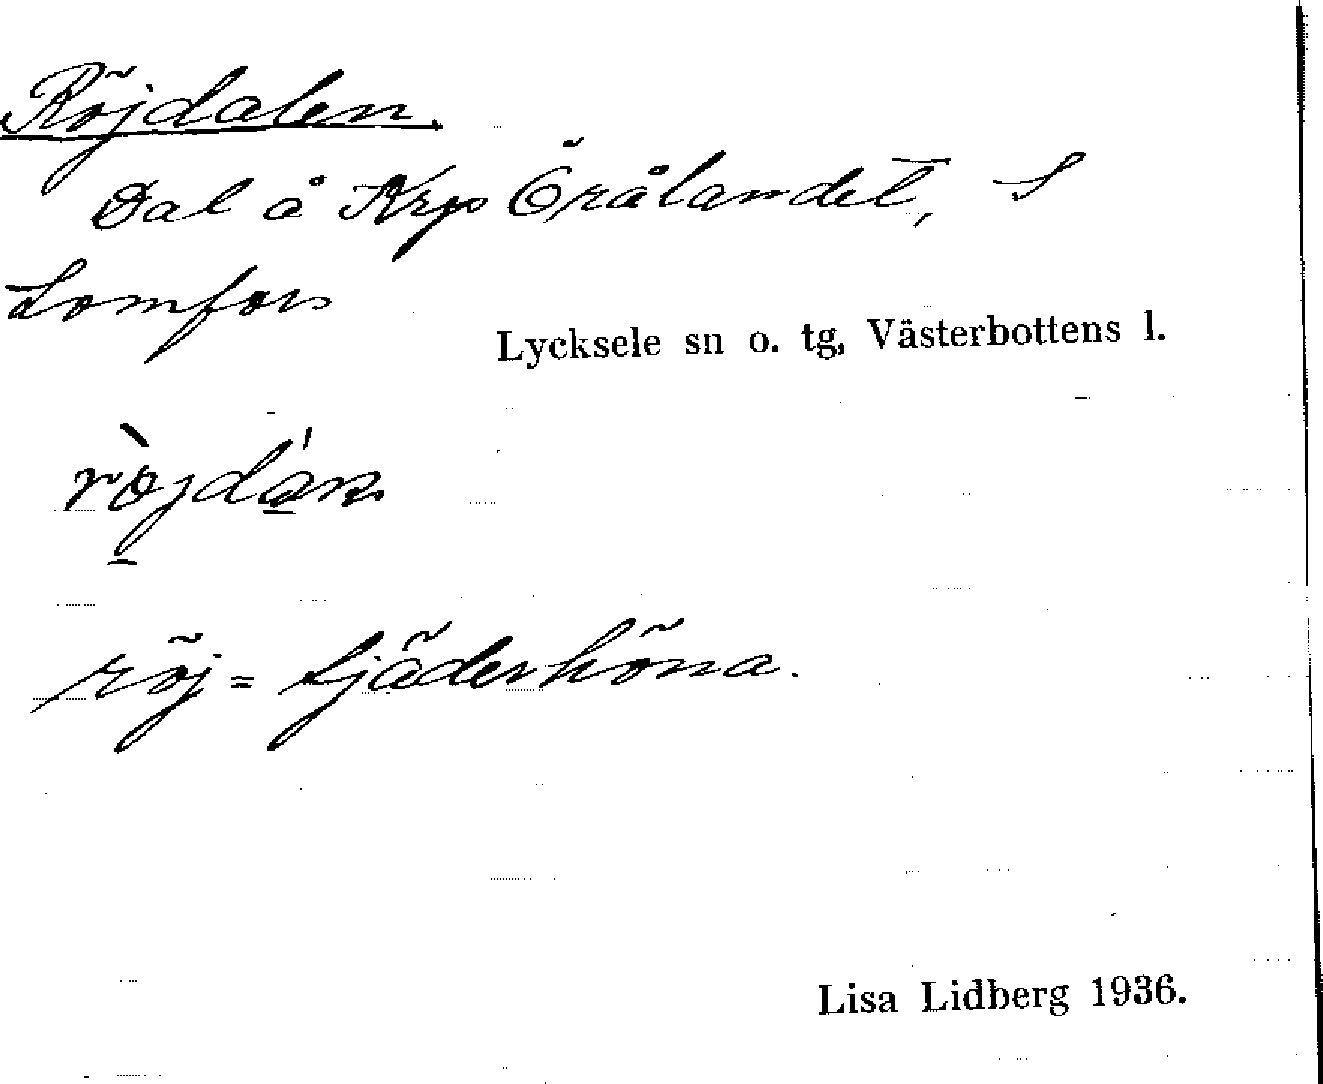 Röjdalen.
Dal å Krp Örålandet, S
Lomfors
Lycksele sn o. tg, Västerbottens l.
röj = tjäderhöna.
Lisa Lidberg 1936.